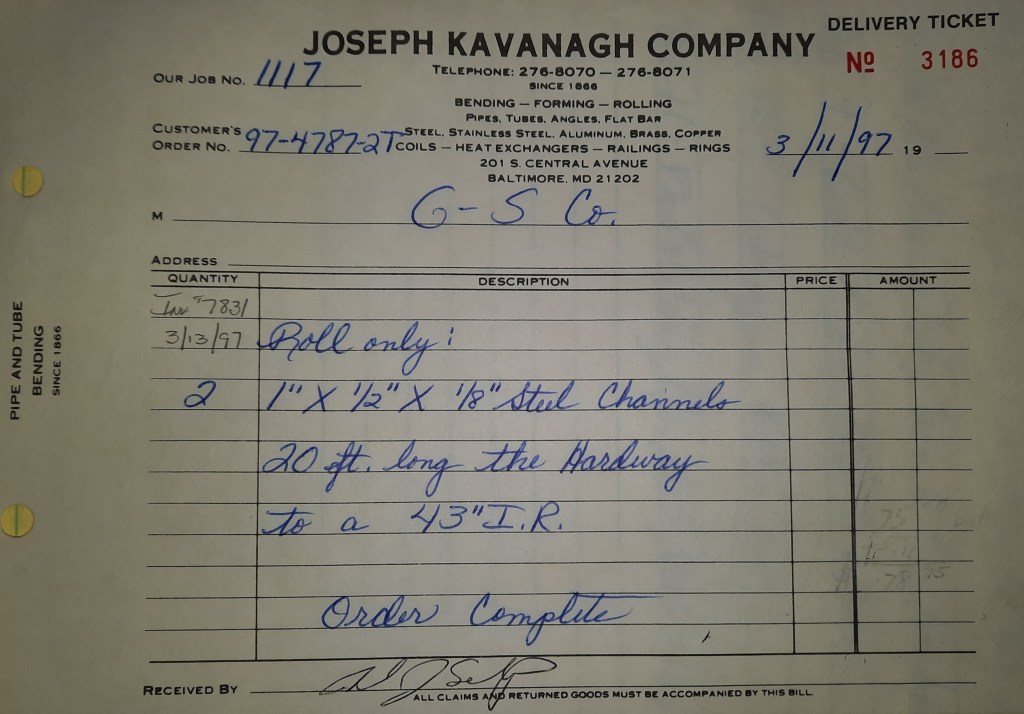 DELIVERY TICKET
JOSEPH KAVANAGH COMPANY
Nº 3186
OUR JOB NO. 1117
TELEPHONE: 276-8070 — 276-8071
SINCE 1866
BENDING — FORMING — ROLLING
PIPES, TUBES, ANGLES, FLAT BAR
CUSTOMER'S
ORDER NO. 97-4787-2T
STEEL, STAINLESS STEEL, ALUMINUM, BRASS, COPPER
COILS — HEAT EXCHANGERS — RAILINGS — RINGS
3/11/97 19
201 S. CENTRAL AVENUE
BALTIMORE, MD 21202
M G-S Co.
ADDRESS
QUANTITY DESCRIPTION PRICE AMOUNT
Inv # 7831
3/13/97 Roll only:
2 1" X 1/2" X 1/8" Steel Channels
20 ft. long the Hardway
to a 43" I.R.
75
78 15
Order Complete
RECEIVED BY
ALL CLAIMS AND RETURNED GOODS MUST BE ACCOMPANIED BY THIS BILL
PIPE AND TUBE
BENDING
SINCE 1866